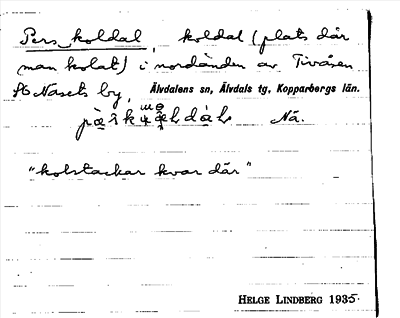 Pers koldal, koldal (plats där
man kolat) i nordänden av Tivåsen
Näsets by, Älvdalens sn, Älvdals tg, Kopparbergs län.
Nä.
"kolstackar kvar där"
HELGE LINDBERG 1935.